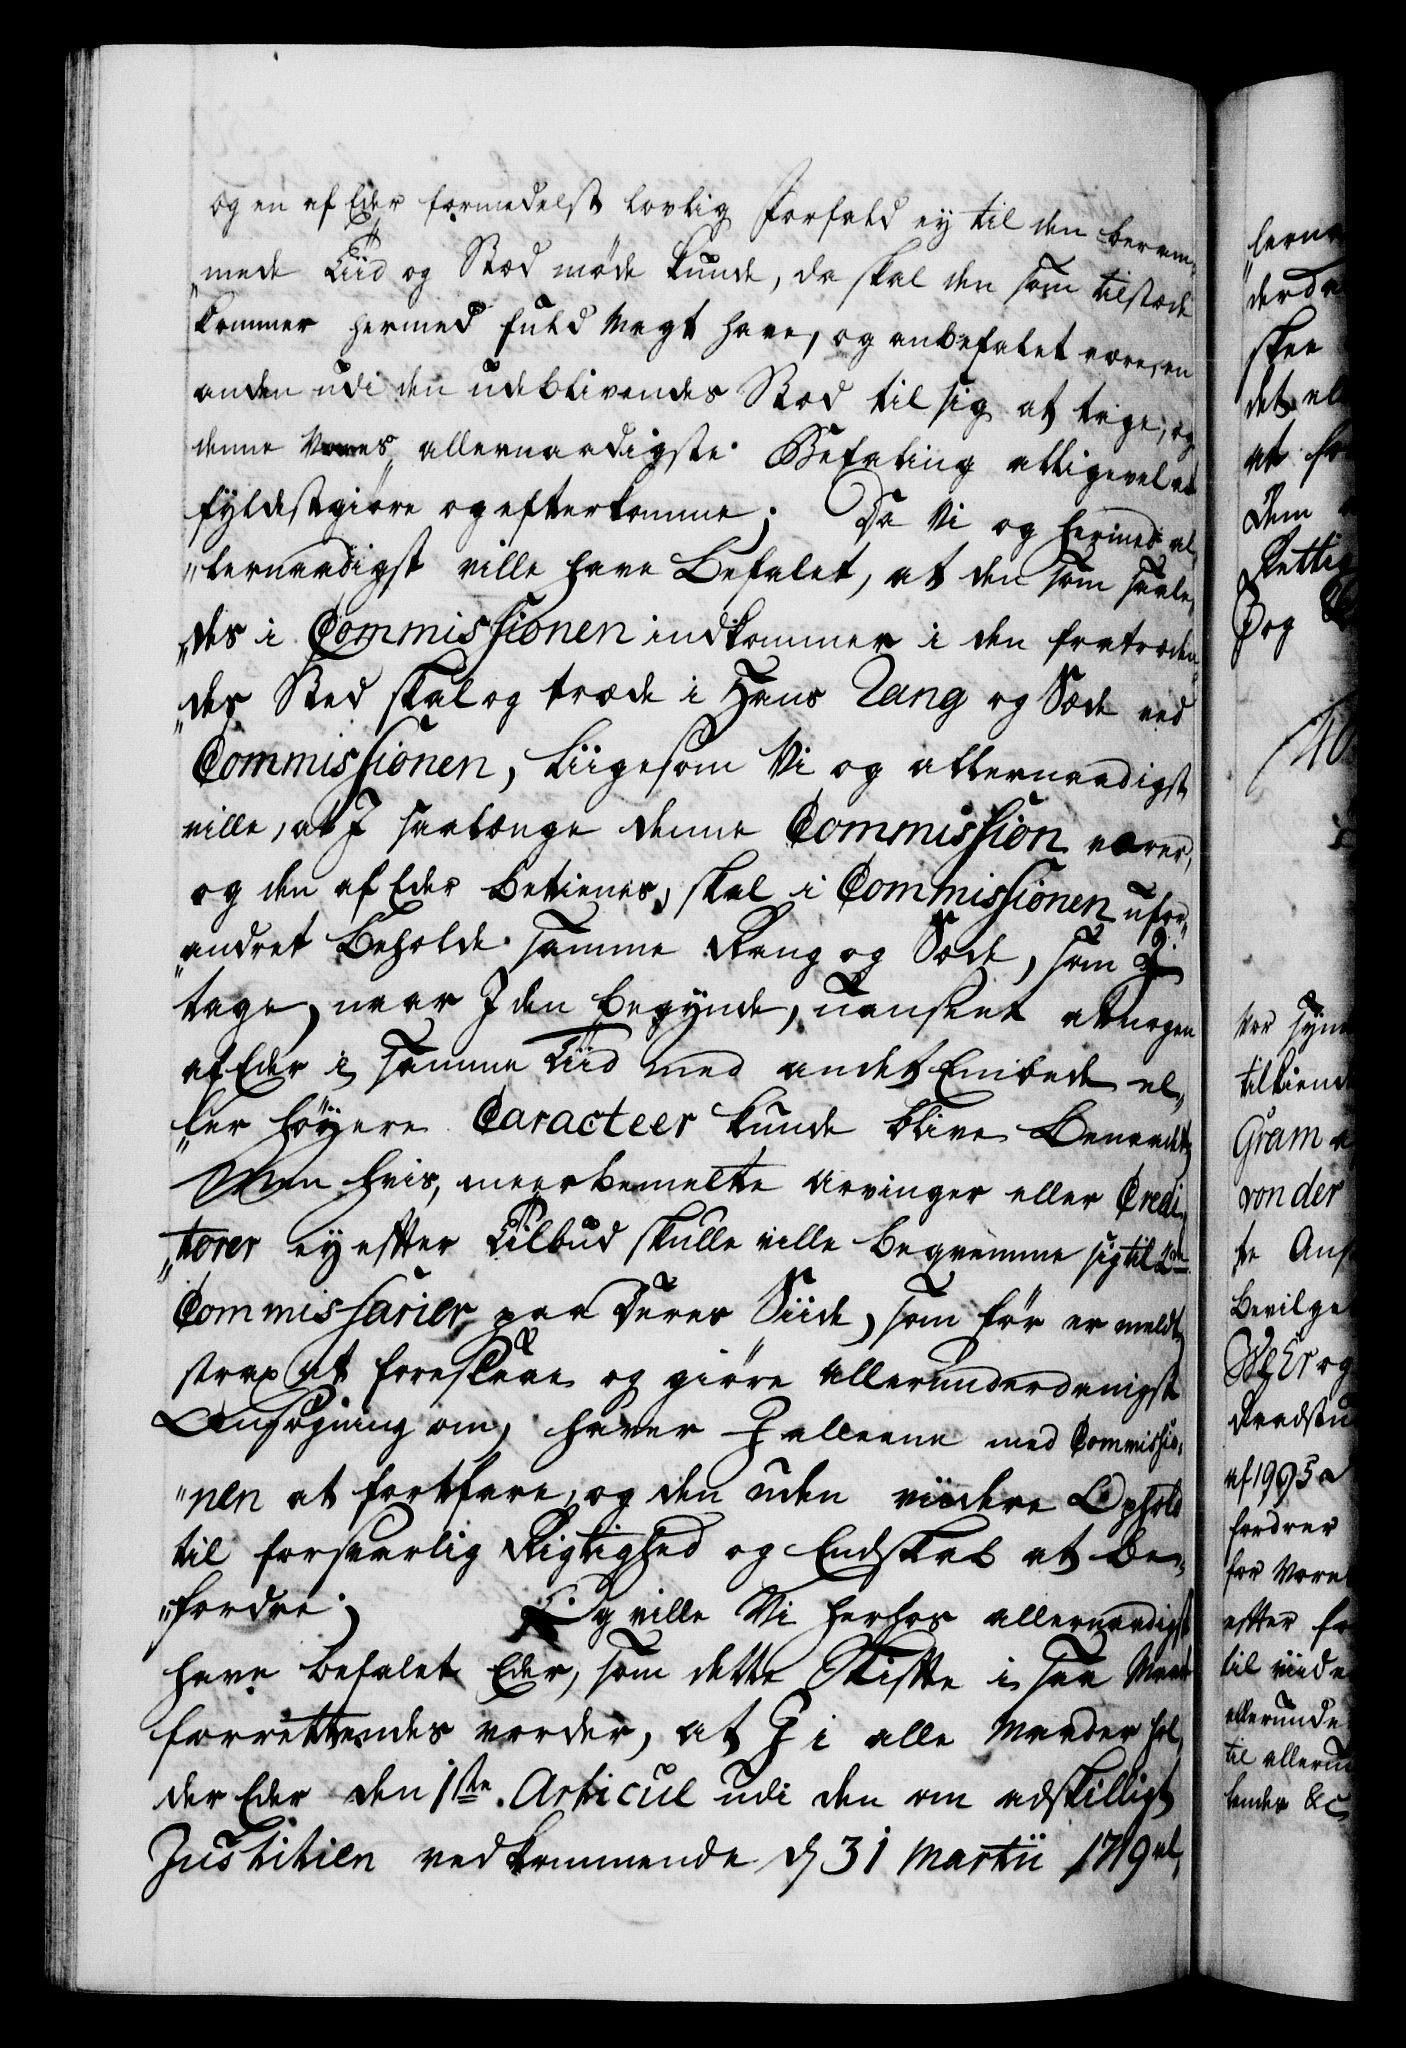 og en af Eder formedelst lovlig Forfald ey til den beram„
„mede Tiid og Stæd møde kunde, da skal den som tilstæde
kommer hermed fuld Magt have, og anbefalet være, en
anden udi den udeblivendes Stæd til sig at tage, og
denne Vores allernaadigste Befaling alligevel at
fyldestgiøre og efterkomme; Da Vi og hermed al„
„lernaadigst ville have befalet, at den som saale„
„des i Commissionen indkommer i den fratræden„
„des Sted skal og træde i Hans Rang og Sæde ved
Commissionen, liigesom Vi og allernaadigst
ville, at I saalænge denne Commission varer,
og den af Eder betienes, skal i Commissionen ufor„
„andret beholde samme Rang og Sæde, som I
tage, naar I den begynde, uanseet at nogen
af Eder i samme Tiid med andet Embede el„
„ler høyere Caracteer kunde blive benaadet;
Men hvis, meerbemelte Arvinger eller Credi„
„torer ey efter Tilbud skulle ville beqvemme sig til 2de
Commissarier paa Deres Siide, som før er meldt,
strax at foreslaae og giøre allerunderdanigst
Ansøgning om, haver I alleene med Commissio„
„nen at fortfare, og den uden viidere Ophold
til forsvarlig Rigtighed og Endskab at be„
„fordre; Og ville Vi herhos allernaadigst
have befalet Eder, som dette Skifte i saa Maade
forrettendes vorder, at I i alle Maader hol„
der Eder den 1ste Articul udi den om adskilligt
Justitien vedkommende d 31 Martii 1719 al„